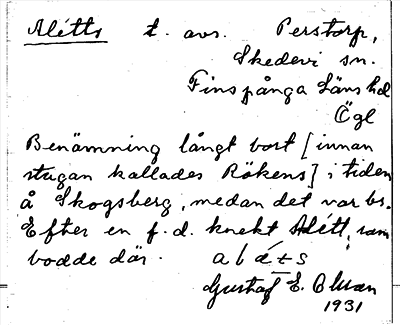 Alétts t. avs. Perstorp,
Skedevi sn.
Finspånga Läns hd
Ögl
Benämning långt bort [innan
stugan kallades Rökens] i tiden
å Skogsberg, medan det var bs.
Efter en f.d. knekt Alétt, som
bodde där. alåts
Gustaf E. Olsson
1931